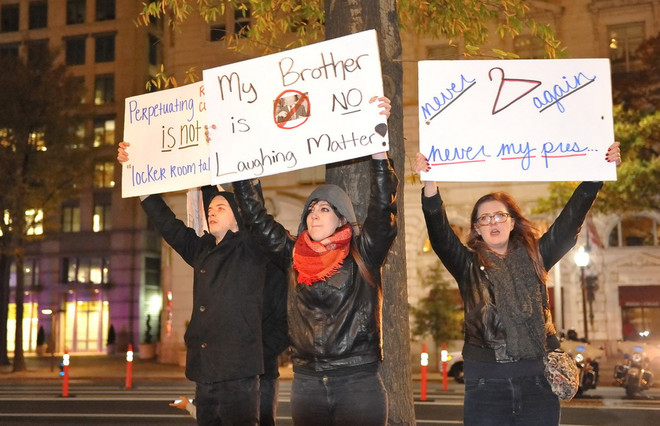 Perpetuating
is not
"locker room tal
My Brother
is NO
Laughing Matter
never again
never my pres...